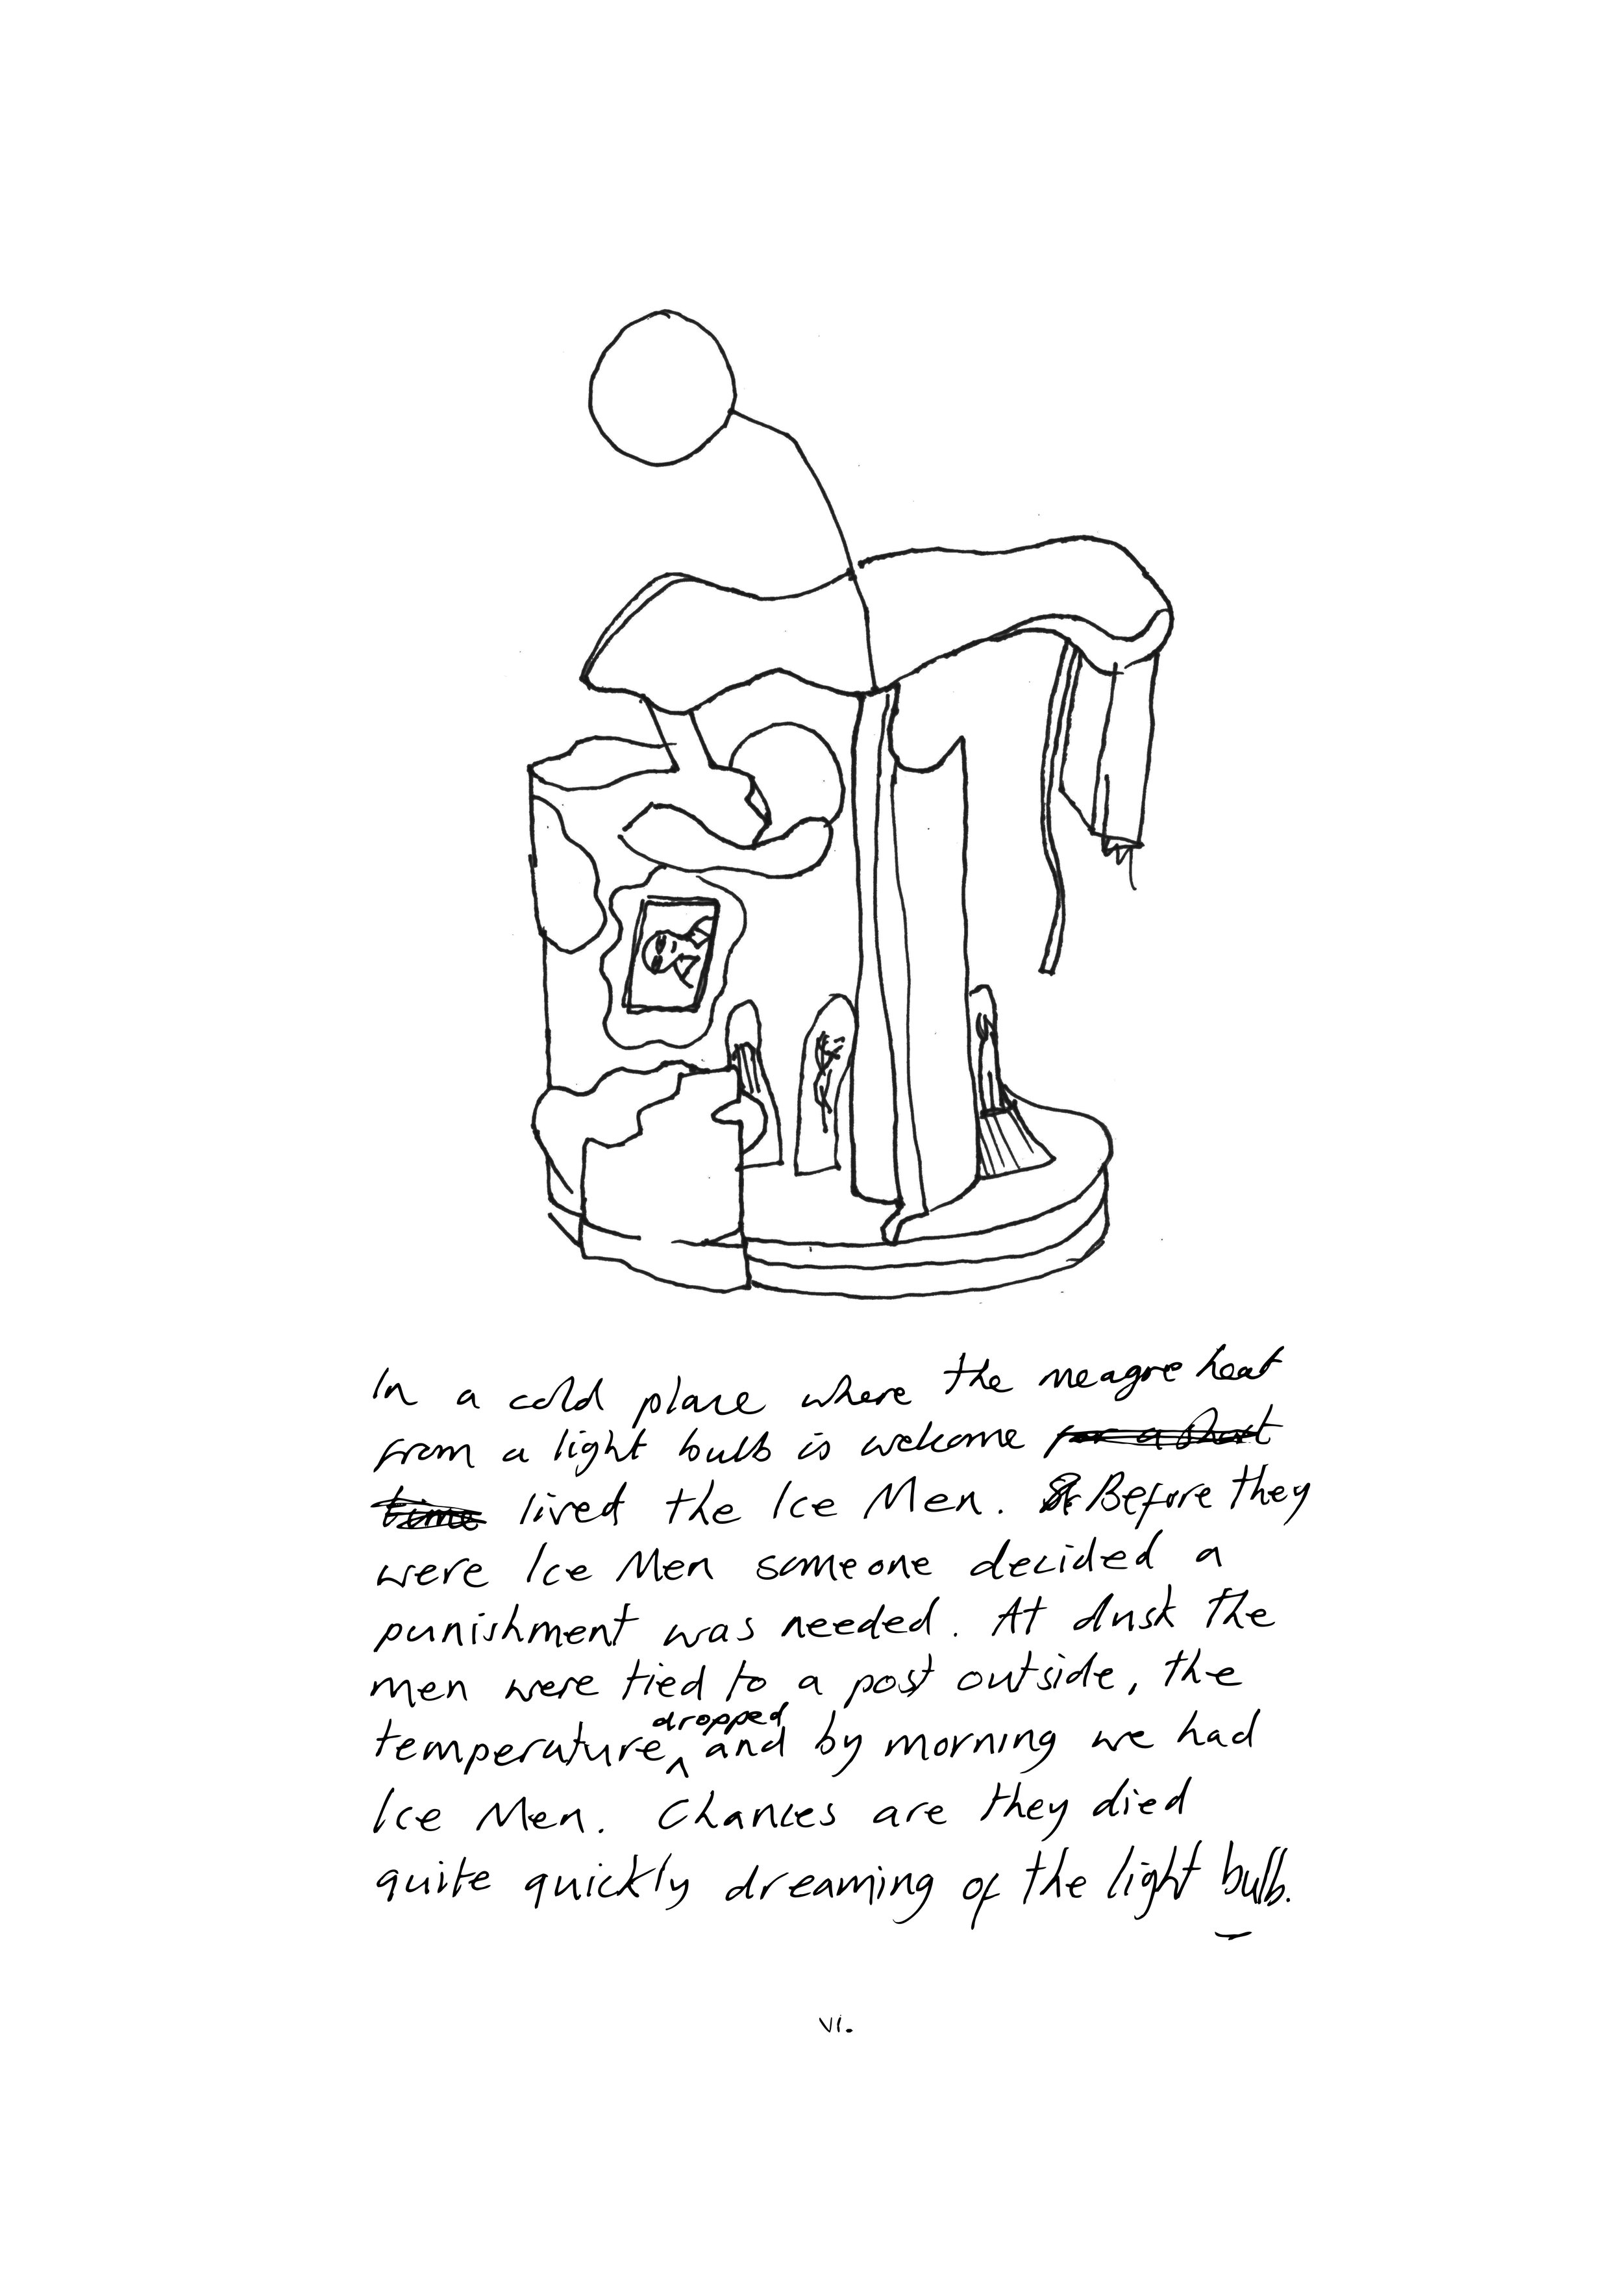 In a cold place where the meagre heat
from a light bulb is welcome for a short
time lived the Ice Men. Before they
were Ice Men someone decided a
punishment was needed. At dusk the
men were tied to a post outside, the
temperature dropped and by morning we had
Ice Men. Chances are they died
quite quickly dreaming of the light bulb.
vi.